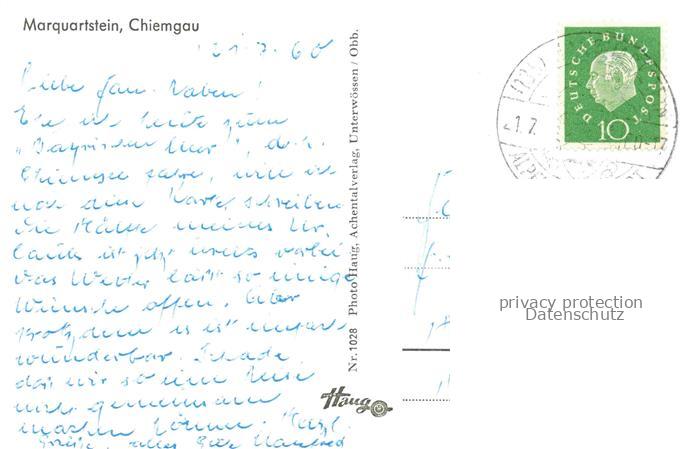 Marquartstein, Chiemgau
21.7.60
Liebe Frau Naben!
Ehe ich heute zum
„Bayrischen Meer", d.h.
Chiemsee fahre, will ich
noch diese Karte schreiben.
Die Hälfte meines Ur-
laubs ist jetzt vorbei
Das Wetter läßt so einige
Wünsche offen. Aber
trotzdem es ist
wunderbar. Schade,
daß wir so eine Reise
nicht gemeinsam
machen können. Herzl.
Grüße, alles Gute Manfred
Nr. 1028 Photo Haug, Achentalverlag, Unterwössen / Obb.
Haug
DEUTSCHE BUNDESPOST
10
privacy protection
Datenschutz